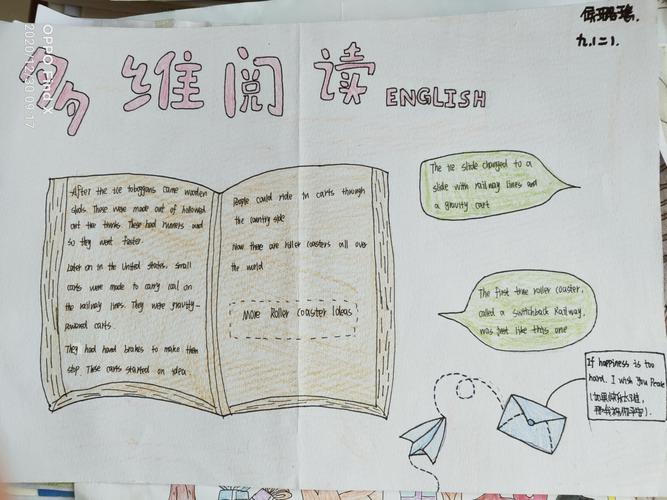 多维阅读 ENGLISH
九.(二).
OPPO Find X
2020/12/30 09:17
After the ice toboggans came wooden
sleds. These were made out of hollowed
out tree trunks. These had runners and
so they went faster.
Later on in the United states. small
carts were made to carry coal on
the railway lines. They were gravity-
powered carts.
They had hand brakes to make them
stop. These carts started an idea
People could ride in carts through
the country side
Now there are roller coasters all over
the world
More Roller Coaster Ideas
The ice slide changed to a
slide with railway lines and
a gravity cart
The first true roller coaster,
called a Switchback Railway,
was just like this one
If happiness is too
hard. I wish You Peace
(如果快乐太难,
那我祝你平安).